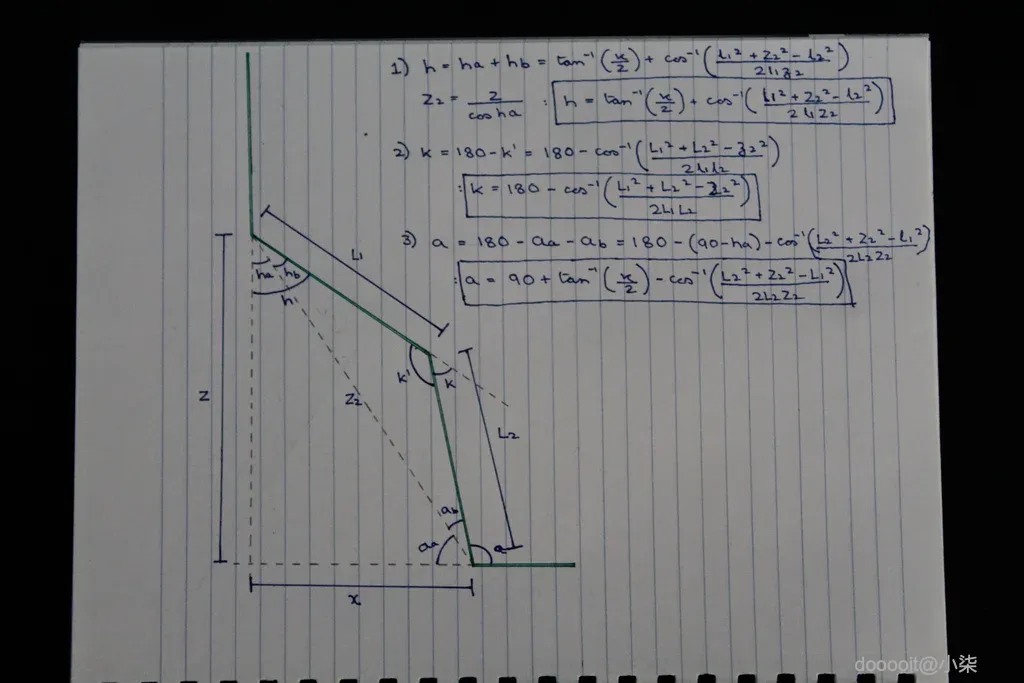 1) h = ha + hb = tan⁻¹(x/2) + cos⁻¹((l₁² + Z₂² − l₂²)/(2l₁z₂))
Z₂ = Z/(cos ha) : h = tan⁻¹(x/2) + cos⁻¹((L₁² + Z₂² − l₂²)/(2L₁Z₂))
2) K = 180 − K' = 180 − cos⁻¹((L₁² + L₂² − Z₂²)/(2L₁L₂))
: K = 180 − cos⁻¹((L₁² + L₂² − Z₂²)/(2L₁L₂))
3) a = 180 − aa − ab = 180 − (90 − ha) − cos⁻¹((L₂² + Z₂² − L₁²)/(2L₂Z₂))
: a = 90 + tan⁻¹(x/2) − cos⁻¹((L₂² + Z₂² − L₁²)/(2L₂Z₂))
L₁
ha hb
h
K' K
Z
Z₂
L₂
ab
aa a
x
dooooit@小柒